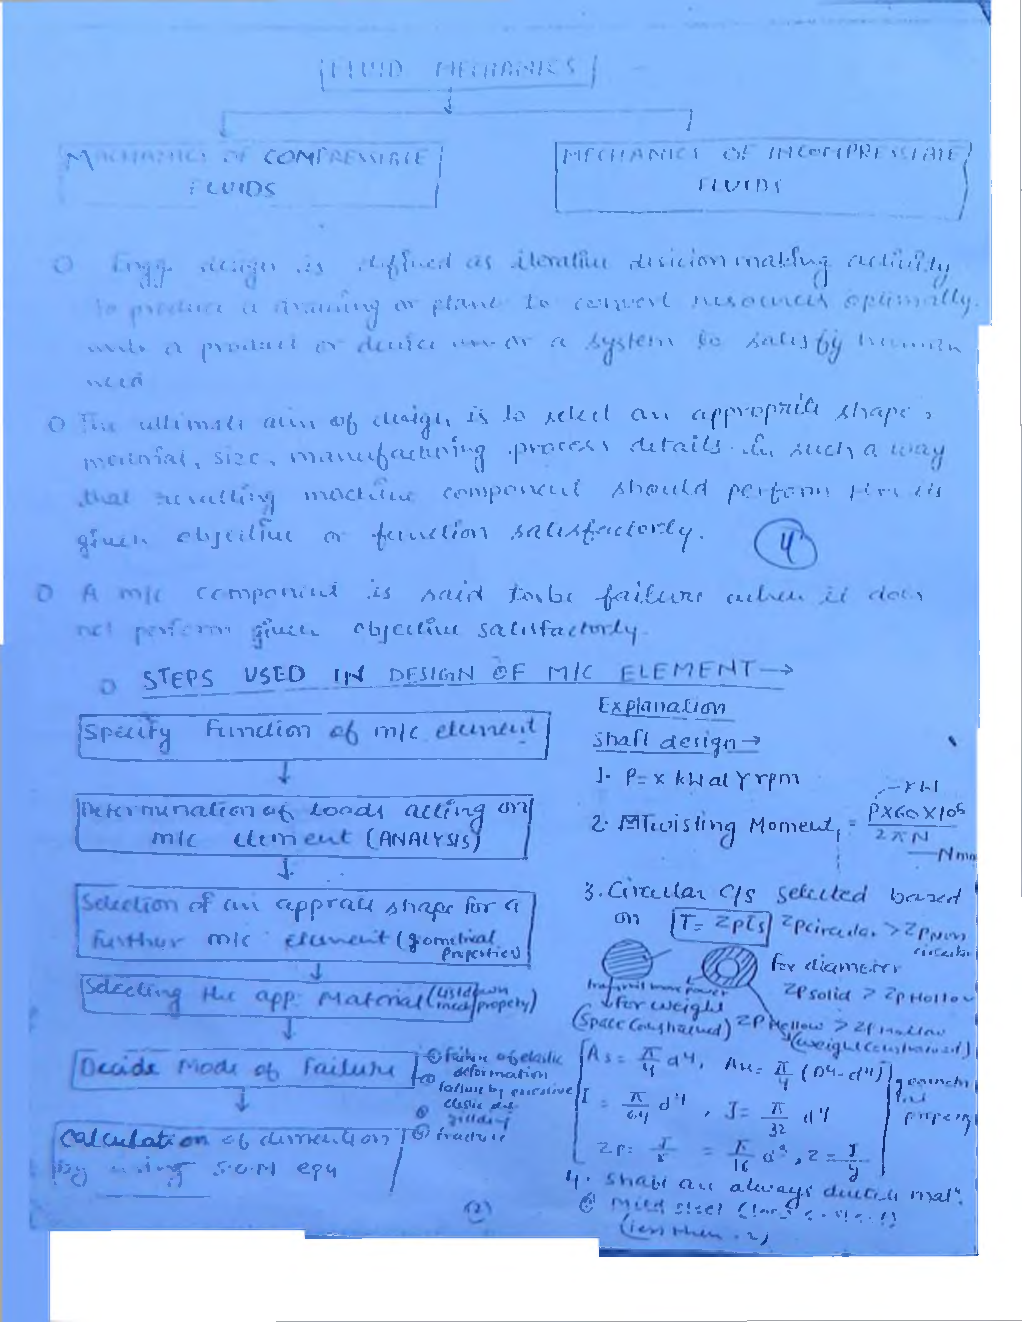 FLUID MECHANICS
MECHANICS OF COMPRESSIBLE
FLUIDS
MECHANICS OF INCOMPRESSIBLE
FLUIDS
O Engg. design is defined as iterative decision making activity
to produce a drawing or plant to convert resources optimally
into a product or device or a system to satisfy human
need
O The ultimate aim of design is to select an appropriate shape,
material, size, manufacturing process details. In such a way
that resulting machine component should perform its
given objective or function satisfactorly.
4
O A m/c component is said to be failure when it does
not perform given objective satisfactorly.
O STEPS USED IN DESIGN OF M/C ELEMENT →
Specify Function of m/c element
Determination of loads acting on
m/c element (ANALYSIS)
Selection of an apprate shape for a
further m/c element (geometrical
Properties)
Selecting the app. Material
Decide Mode of Failure
① Failure of elastic
deformation
failure by excessive
yielding
③ fracture
Calculation of dimention
by using S.O.M eqn
(2)
Explanation
Shaft design →
1. P = x kW at Y rpm
2. Twisting Moment, = P×60×10⁶ / 2πN
— Nmm
3. Circular C/S selected based
on T = Zp τs Zpcircular > ZpNon
circular
for diameter
Zpsolid > Zp Hollow
for weight
(Space Constrained) Zp Hollow >
(weight Constrained)
As = π/4 d⁴, AH = π/4 (D⁴-d⁴)
I = π/64 d⁴, J = π/32 d⁴
Zp = J/r = π/16 d³, Z = I/y
property
4. Shaft are always ductile mat.
① Mild steel
(less then .2)